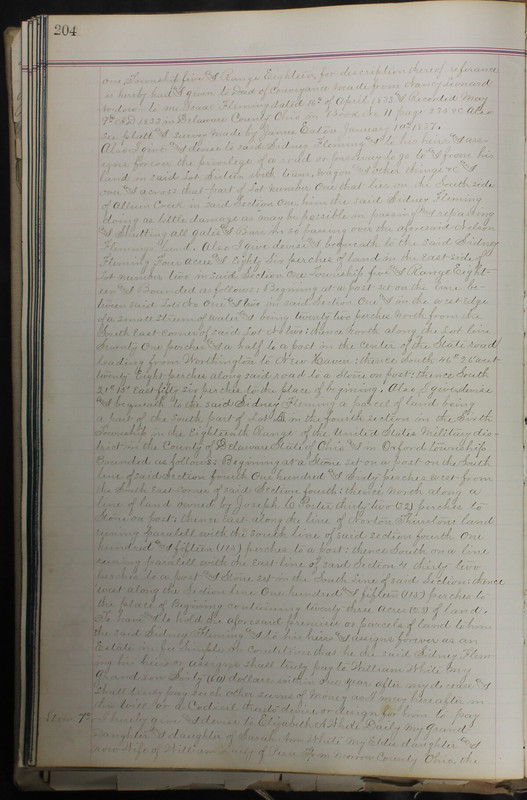 204
one, Township five & Range Eighteen, for description thereof reference
is hereby had & given to Deed of Conveyance made from Leonard
widow to me Isaac Fleming dated 16th of April 1832 & Recorded May
9th AD 1832 in Delaware County Ohio in Book No 11 page 275 &c Also
see platt & survey made by James Eaton January 10th 1827.
Also I give & devise to said Sidney Fleming & to his heirs & ass-
igns forever the privilege of a road or passway to go to & from his
land in said Lot Sixteen with team, wagon & other things &c &
across that part of Lot number One that lies on the South side
of Allum Creek in said Section One him the said Sidney Fleming
doing as little damage as may be possible in passing & repassing
& Shutting all gates & Bars in so passing over the aforesaid Nelson
Fleming land. Also I give devise & bequeath to the said Sidney
Fleming Four Acres & Eighty Six perches of land in the east side of
Lot number two in said Section One Township five & Range Eight-
een & Bounded as follows: Begining at a post set on the line be-
tween said Lots No One & two in said Section One & on the west edge
of a small stream of water & being twenty two perches North from the
South east corner of said Lot No two: thence North along the Lot line
Seventy One perches & a half to a post in the center of the State road
leading from Worthington to New Haven: thence South 46° 26' west
twenty Eight perches along said road to a stone on post; thence South
21° 15' East fifty six perches to the place of begining. Also I give devise
& bequeath to the said Sidney Fleming a parcel of land being
a part of the South part of Lot in the fourth section in the Sixth
Township in the Eighteenth Range of the United States Military dis-
trict in the County of Delaware State of Ohio & in Oxford township
Bounded as follows: Begining at a Stone set on a post on the South
line of said Section fourth One hundred & Sixty perches west from
the South East corner of said Section fourth: thence North along a
line of land owned by Joseph Porter thirty two (32) perches to
Stone on post; thence East along the line of Norton Thurstons land
runing paralell with the South line of said section fourth One
hundred & fifteen (115) perches to a post: thence South on a line
runing paralell with the east line of said Section 4 thirty two
perches to a post & Stone set in the South line of said Section: thence
west along the Section line One hundred & fifteen (115) perches to
the place of Begining containing twenty three Acres (23) of land.
To have & to hold the aforesaid premises or parcels of land to him
the said Sidney Fleming & to his heirs & assigns forever as an
Estate in fee simple on Condition that he the said Sidney Flem-
ing his heirs or assigns shall truly pay to William White my
Grand son Sixty (60) dollars within One year after my decease &
Shall truly pay such other sums of Money as I may hereafter in
this Will or a Codicil thereto devise or assign for him to pay
Item 7th I hereby give & devise to Elizabeth A White Daily my Grand
daughter & daughter of Sarah Ann White my Eldest daughter &
now Wife of William Daily of in Morrow County Ohio, the